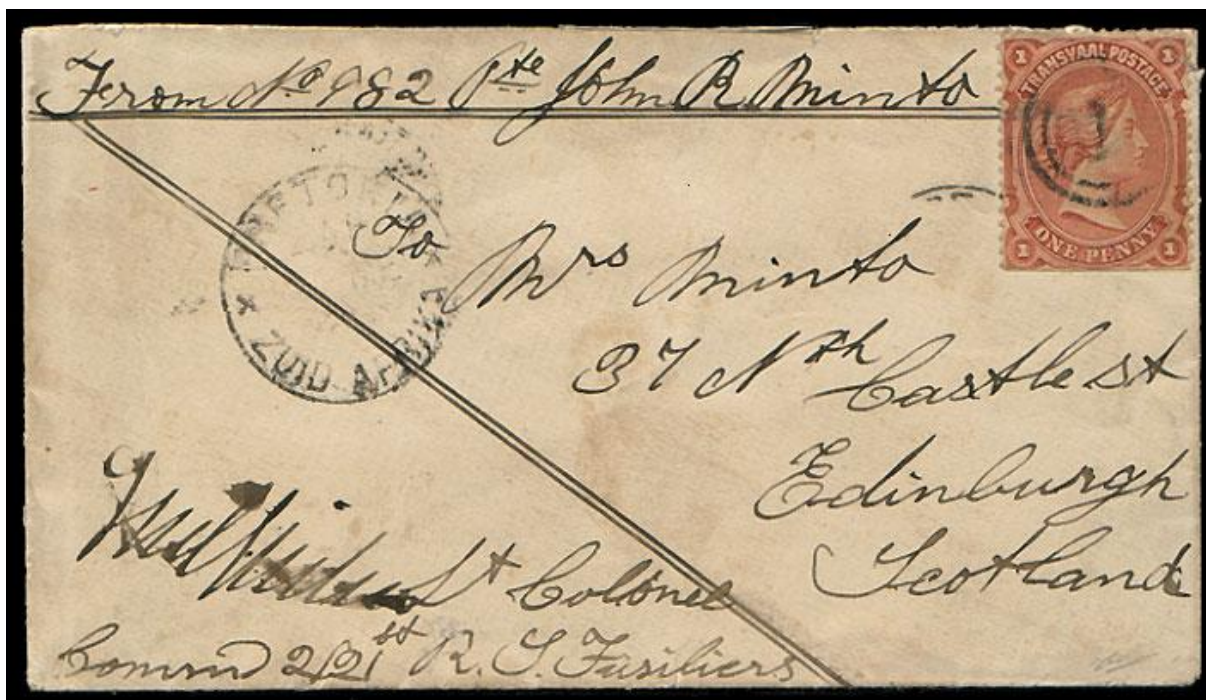 From No 982 Pte John R Minto
1 TRANSVAAL POSTAGE 1
1 ONE PENNY 1
PRETORIA
x ZUID AFRIKA
To
Mrs Minto
37 Nth Castle st
Edinburgh
Scotland
Lt Colonel
Command 2/21st R. S. Fusiliers